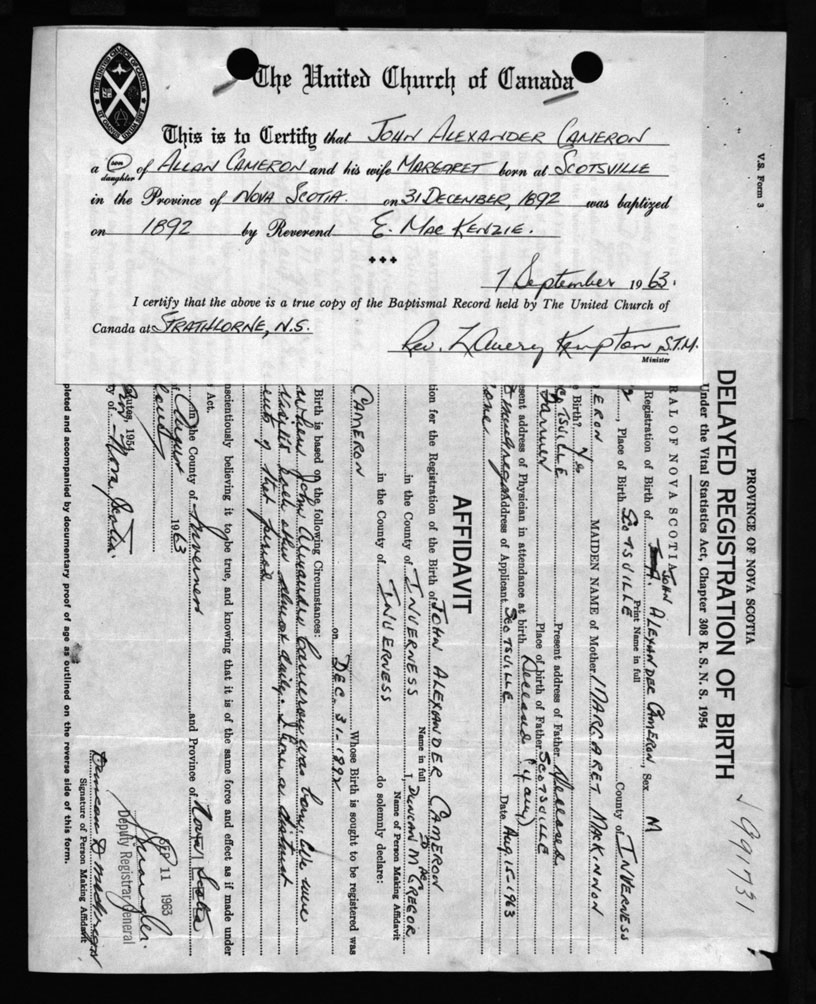 The United Church of Canada
This is to Certify that JOHN ALEXANDER CAMERON
a son daughter of ALLAN CAMERON and his wife MARGARET born at SCOTSVILLE
in the Province of NOVA SCOTIA. on 31 DECEMBER, 1892 was baptized
on 1892 by Reverend E. MAC KENZIE.
7 September 1963.
I certify that the above is a true copy of the Baptismal Record held by The United Church of
Canada at STRATHLORNE, N.S. Rev. Avery Kempton S.T.M.
Minister
V.S. Form 3
PROVINCE OF NOVA SCOTIA
DELAYED REGISTRATION OF BIRTH
Under the Vital Statistics Act, Chapter 308 R. S. N. S. 1954
991731
RAL OF NOVA SCOTIA
JOHN
Registration of Birth of ALEXANDER CAMERON, Sex M
Print Name in full
2, Place of Birth SCOTSVILLE County of INVERNESS
ERON MAIDEN NAME of Mother MARGARET MAKINNON
Birth? Yes Present address of Father Deceased
SCOTSVILLE Place of birth of Father SCOTSVILLE
Farmer
esent address of Physician in attendance at birth Deceased (if any)
Address of Applicant SCOTSVILLE Date Aug. 15-1963
AFFIDAVIT
tion for the Registration of the Birth of JOHN ALEXANDER CAMERON
Name in full
in the County of INVERNESS I, DUNCAN D McGREGOR
Name of Person Making Affidavit
in the County of INVERNESS do solemnly declare:
CAMERON Whose Birth is sought to be registered was
on DEC. 31-1892
Birth is based on the following Circumstances:
when John Alexander Cameron was born. We were
visited each other almost daily. I have a distinct
of that period
nscientiously believing it to be true, and knowing that it is of the same force and effect as if made under
Act.
in the County of Inverness and Province of Nova Scotia
of August 1963
tutes, 1954
ty of Nova Scotia.
SEP 11 1963
Deputy Registrar General
Duncan D McGregor
Signature of Person Making Affidavit
pleted and accompanied by documentary proof of age as outlined on the reverse side of this form.